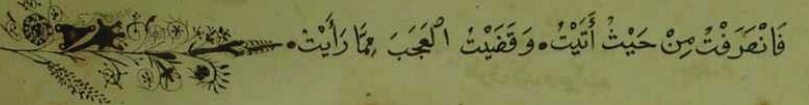 فَانْصَرَفْتُ مِنْ حَيْثُ أَتَيْتُ ۰ وَقَضَيْتُ الْعَجَبَ مِمَّا رَأَيْتُ ۰